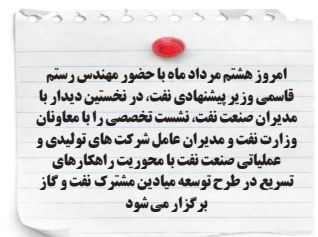 امروز هشتم مرداد ماه با حضور مهندس رستم
قاسمی وزیر پیشنهادی نفت، در نخستین دیدار با
مدیران صنعت نفت، نشست تخصصی را با معاونان
وزارت نفت و مدیران عامل شرکت های تولیدی و
عملیاتی صنعت نفت با محوریت راهکارهای
تسریع در طرح توسعه میادین مشترک نفت و گاز
برگزار می شود